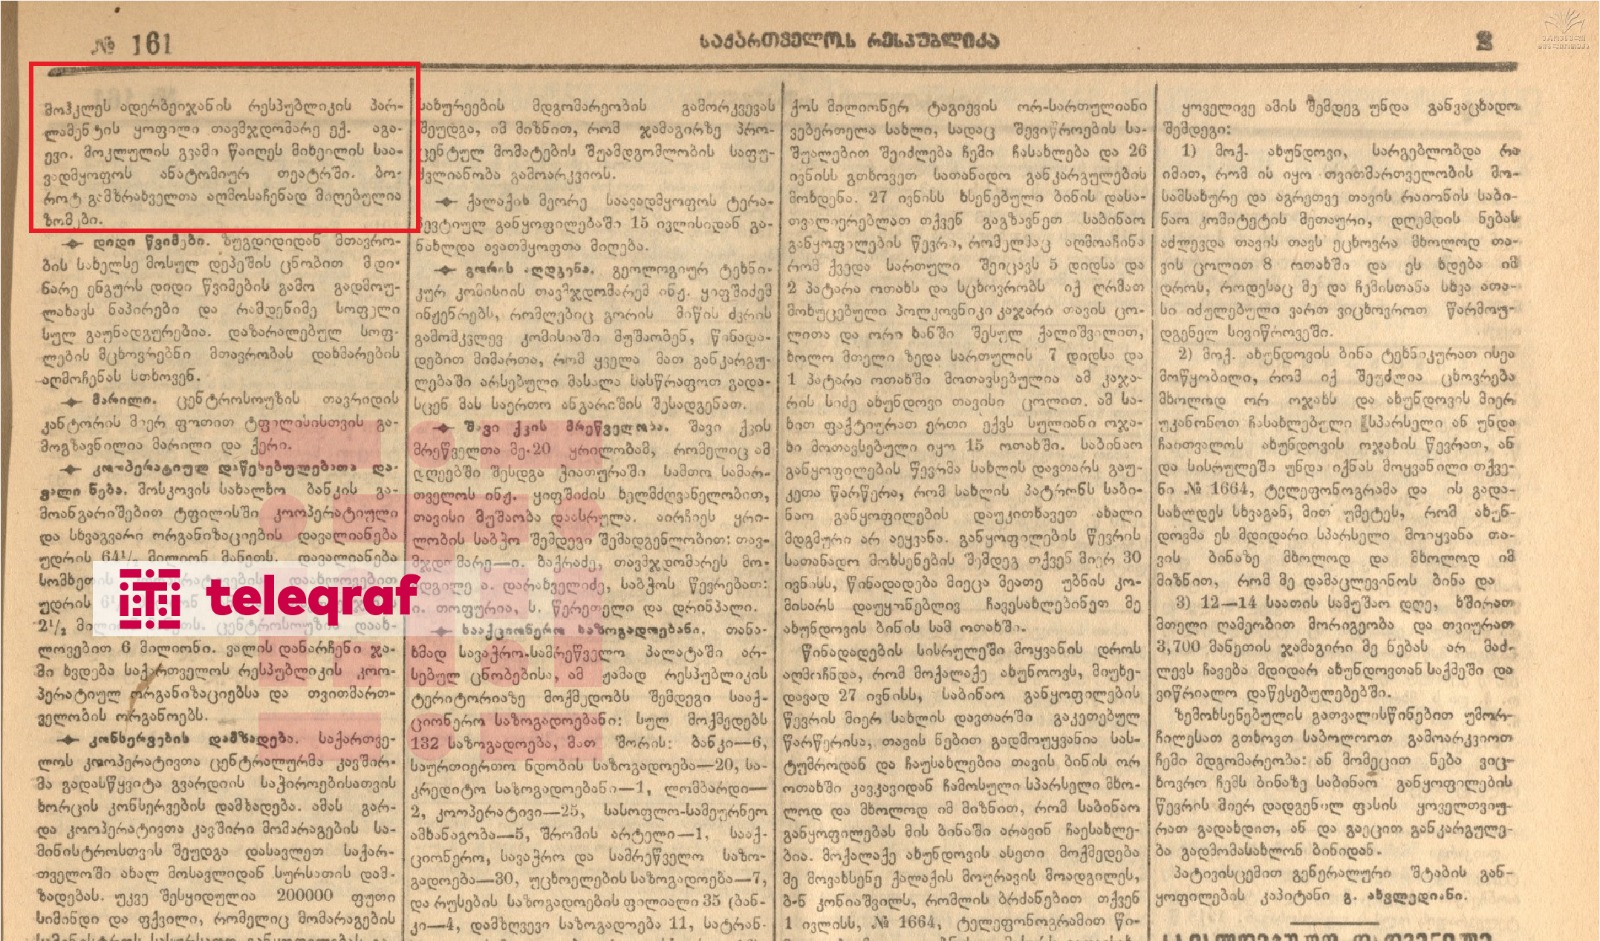 № 161
საქართველოს რესპუბლიკა
3
მოჰკლეს ადერბეიჯანის რესპუბლიკის პარ-
ლამენტის ყოფილი თავმჯდომარე ექ. აგა-
ევი. მოკლულის გვამი წაიღეს მიხეილის საა-
ვადმყოფოს ანატომიურ თეატრში. ბო-
როტ გამზრახველთა აღმოსაჩენად მიღებულია
ზომები.
დიდი წვიმები. ზუგდიდიდან მთავრო-
ბის სახელზე მოსულ დეპეშის ცნობით მდი-
ნარე ენგურს დიდი წვიმების გამო გადმოუ-
ლახავს ნაპირები და რამდენიმე სოფელი
სულ გაუნადგურებია. დაზარალებულ სოფ-
ლების მცხოვრებნი მთავრობას დახმარების
აღმოჩენას სთხოვენ.
მარილი. ცენტროსოუზის თავრიდის
კანტორის მიერ ფოთით ტფილისისთვის გა-
მოგზავნილია მარილი და ქერი.
კოოპერატიულ დაწესებულებათა და-
ვალიანება. მოსკოვის სახალხო ბანკის გა-
მოანგარიშებით ტფილისში კოოპერატიული
და სხვაგვარი ორგანიზაციების დავალიანება
უდრის 64½ მილიონ მანეთს. დავალიანება
teleqraf
ლოვებით 6 მილიონი. ვალის დანარჩენი ჯა-
მი ხვდება საქართველოს რესპუბლიკის კოო-
პერატიულ ორგანიზაციებსა და თვითმართ-
ველობის ორგანოებს.
კონსერვების დამზადება. საქართვე-
ლოს კოოპერატივთა ცენტრალურმა კავშირ-
მა გადასწყვიტა გვარდიის საჭიროებისათვის
ხორცის კონსერვების დამზადება. ამას გარ-
და კოოპერატივთა კავშირი მომარაგების სა-
მინისტროსთვის შეუდგა დასავლეთ საქარ-
თველოში ახალ მოსავლიდან სურსათის დამ-
ზადებას. უკვე შესყიდულია 200000 ფუთი
სიმინდი და ფქვილი, რომელიც მომარაგების
სახურეების მდგომარეობის გამორკვევას
შეუდგა, იმ მიზნით, რომ ჯამაგირზე პრო-
ცენტულ მომატების შუამდგომლობის საფუ-
ძვლიანობა გამოარკვიოს.
ქალაქის მეორე საავადმყოფოს ტერა-
პევტიულ განყოფილებაში 15 ივლისიდან გა-
ნახლდა ავათმყოფთა მიღება.
გორის აღდგენა. გეოლოგიურ ტეხნი-
კურ კომისიის თავმჯდომარემ ინჟ. ყიფშიძემ
ინჟენრებს, რომლებიც გორის მიწის ძვრის
გამომკვლევ კომისიაში მუშაობენ, წინადა-
დებით მიმართა, რომ ყველა მათ განკარგუ-
ლებაში არსებული მასალა სასწრაფოთ გადა-
სცენ მას საერთო ანგარიშის შესადგენათ.
შავი ქვის მრეწველობა. შავი ქვის
მრეწველთა მე-20 ყრილობამ, რომელიც ამ
დღეებში შესდგა ჭიათურაში სამთო სამარ-
თველოს ინჟ. ყიფშიძის ხელმძღვანელობით,
თავისი მუშაობა დაასრულა. აირჩიეს ყრი-
ლობის საბჭო შემდეგი შემადგენლობით: თავ-
მჯდომარე—ი. ბაქრაძე, თავმჯდომარეს მო-
ადგილე დარახველიძე, საბჭოს წევრებათ:
ი. თოფურია, ს. წერეთელი და დრინპალი.
სააქციონერო საზოგადოებანი. თანა-
ხმად სავაჭრო-სამრეწველო პალატაში არ-
სებულ ცნობებისა, ამ ჟამად რესპუბლიკის
ტერიტორიაზე მოქმედობს შემდეგი სააქ-
ციონერო საზოგადოებანი: სულ მოქმედებს
132 საზოგადოება, მათ შორის: ბანკი—6,
საურთიერთო ნდობის საზოგადოება—20, სა-
კრედიტო საზოგადოებანი—1, ლომბარდი—
2, კოოპერატივი—25, სასოფლო-სამეურნეო
ამხანაგობა—5, შრომის არტელი—1, სააქ-
ციონერო, სავაჭრო და სამრეწველო საზო-
გადოება—30, უცხოელების საზოგადოება—7,
და რუსების საზოგადოების ფილიალი 35 (ბან-
კი—4, დამზღვევი საზოგადოება 11, სატრან-
ქოს მილიონერ ტაგიევის ორ-სართულიანი
ვებერთელა სახლი, სადაც შევიწროების სა-
შუალებით შეიძლება ჩემი ჩასახლება და 26
ივნისს გთხოვეთ სათანადო განკარგულების
მოხდენა. 27 ივნისს ხსენებული ბინის დასა-
თვალიერებლათ თქვენ გაგზავნეთ საბინაო
განყოფილების წევრი, რომელმაც აღმოაჩინა
რომ ქვედა სართული შეიცავს 5 დიდსა და
2 პატარა ოთახს და სცხოვრობს იქ ღრმათ
მოხუცებული პოლკოვნიკი კაჯარი თავის ცო-
ლითა და ორი ხანში შესულ ქალიშვილით,
ხოლო მთელი ზედა სართულის 7 დიდსა და
1 პატარა ოთახში მოთავსებულია ამ კაჯა-
რის სიძე ახუნდოვი თავისი ცოლით. ამ სა-
ხით ფაქტიურათ ერთი ექვს სულიანი ოჯა-
ხი მოთავსებული იყო 15 ოთახში. საბინაო
განყოფილების წევრმა სახლის დავთარს გაუ-
კეთა წარწერა, რომ სახლის პატრონს საბი-
ნაო განყოფილების დაუკითხავეთ ახალი
მდგმური არ აეყვანა. განყოფილების წევრის
სათანადო მოხსენების შემდეგ თქვენ მიერ 30
ივნისს, წინადადება მიეცა მეათე უბნის კო-
მისარს დაუყონებლივ ჩავესახლებინეთ მე
ახუნდოვის ბინის სამ ოთახში.
წინადადების სისრულეში მოყვანის დროს
აღმოჩნდა, რომ მოქალაქე ახუნოოვს, მიუხე-
დავად 27 ივნისს, საბინაო განყოფილების
წევრის მიერ სახლის დავთარში გაკეთებულ
წარწერისა, თავის ნებით გადმოუყვანია სას-
ტუმროდან და ჩაუსახლებია თავის ბინის ორ
ოთახში კავკავიდან ჩამოსული სპარსელი მხო-
ლოდ და მხოლოდ იმ მიზნით, რომ საბინაო
განყოფილებას მის ბინაში არავინ ჩაესახლე-
ბია. მოქალაქე ახუნდოვის ასეთი მოქმედება
მე მოვახსენე ქალაქის მოურავის მოადგილეს,
ბ-ნ კონიაშვილს, რომლის ბრძანებით თქვენ
1 ივლისს, № 1664, ტელეფონოგრამით წი-
ყოველივე ამის შემდეგ უნდა განვაცხადო
შემდეგი:
1) მოქ. ახუნდოვი, სარგებლობდა რა
იმით, რომ ის იყო თვითმართველობის მო-
სამსახურე და აგრეთვე თავის რაიონის საბი-
ნაო კომიტეტის მეთაური, დღემდის ნებას
აძლევდა თავის თავს ეცხოვრა მხოლოდ თა-
ვის ცოლით 8 ოთახში და ეს ხდება იმ
დროს, როდესაც მე და ჩემისთანა სხვა ათა-
სი იძულებული ვართ ვიცხოვროთ წარმოუ-
დგენელ სივიწროვეში.
2) მოქ. ახუნდოვის ბინა ტეხნიკურათ ისეა
მოწყობილი, რომ იქ შეუძლია ცხოვრება
მხოლოდ ორ ოჯახს და ახუნდოვის მიერ
უკანონოთ ჩასახლებული სპარსელი ან უნდა
ჩაითვალოს ახუნდოვის ოჯახის წევრათ, ან
და სისრულეში უნდა იქნას მოყვანილი თქვე-
ნი № 1664, ტელეფონოგრამა და ის გადა-
სახლდეს სხვაგან, მით უმეტეს, რომ ახუნ-
დოვმა ეს მდიდარი სპარსელი მოიყვანა თა-
ვის ბინაზე მხოლოდ და მხოლოდ იმ
მიზნით, რომ მე დამაცლევინოს ბინა და
3) 12—14 საათის სამუშაო დღე, ხშირათ
მთელი ღამეობით მორიგეობა და თვიურათ
3,700 მანეთის ჯამაგირი მე ნებას არ მაძ-
ლევს ჩავება მდიდარ ახუნდოვთან საქმეში და
ვიწრიალო დაწესებულებებში.
ზემოხსენებულის გათვალისწინებით უმორ-
ჩილესათ გთხოვთ საბოლოოთ გამოარკვიოთ
ჩემი მდგომარეობა: ან მომეცით ნება ვიც-
ხოვრო ჩემს ბინაზე საბინაო განყოფილების
წევრის მიერ დადგენილ ფასის ყოველთვიუ-
რათ გადახდით, ან და გაეცით განკარგულე-
ბა გადმომასახლონ ბინიდან.
პატივისცემით გენერალური შტაბის გან-
ყოფილების კაპიტანი გ. ახვლედიანი.